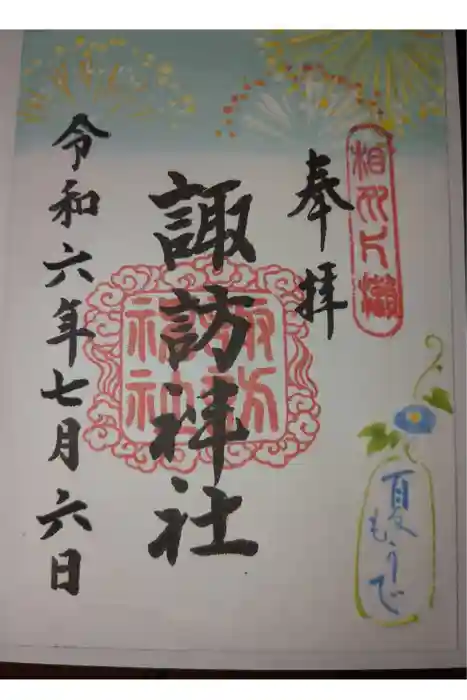 相州片瀬
奉拝
諏訪神社
令和六年七月六日
夏もうで